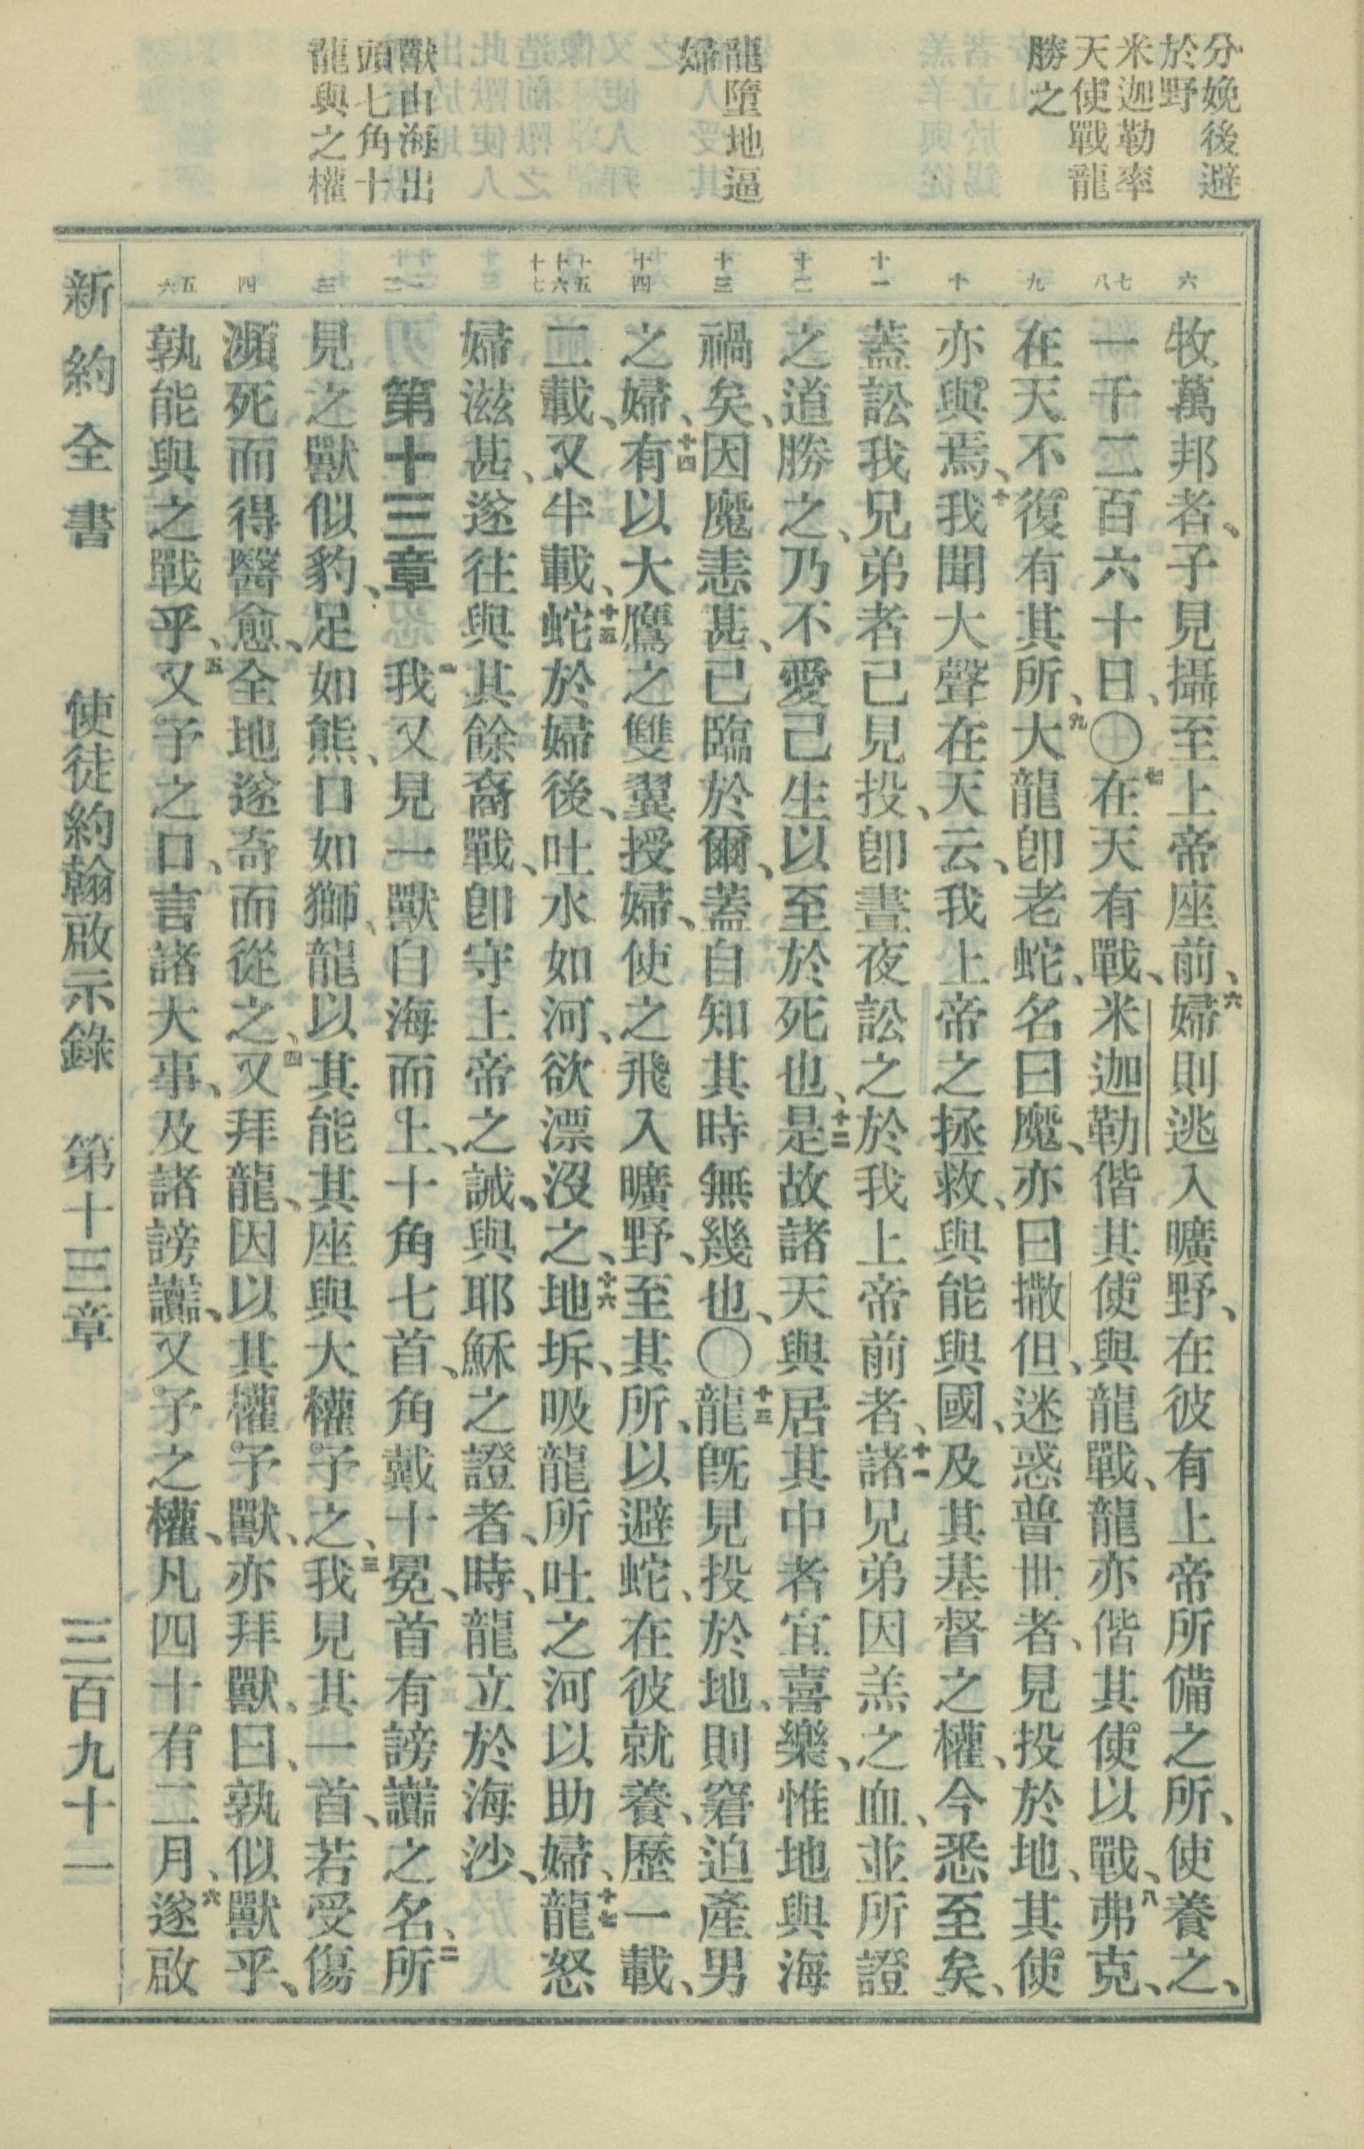 分娩後避
於野
米迦勒率
天使戰龍
勝之
龍墮地逼
婦
獸由海出
頭七角十
龍與之權
六
七 八
九
十
十一
十二
十三
十四
十五 十六 十七
一 二
三
四
五 六
牧萬邦者、子見攝至上帝座前、六婦則逃入曠野、在彼有上帝所備之所、使養之、
一千二百六十日、〇七在天有戰、米迦勒偕其使與龍戰、龍亦偕其使以戰、八弗克、
在天不復有其所、九大龍卽老蛇、名曰魔、亦曰撒但、迷惑普世者、見投於地、其使
亦與焉、十我聞大聲在天云、我上帝之拯救、與能與國、及其基督之權、今悉至矣、
蓋訟我兄弟者已見投、卽晝夜訟之於我上帝前者、十一諸兄弟因羔之血、並所證
之道勝之、乃不愛己生以至於死也、十二是故諸天與居其中者宜喜樂、惟地與海
禍矣、因魔恚甚、已臨於爾、蓋自知其時無幾也、〇十三龍旣見投於地、則窘迫產男
之婦、十四有以大鷹之雙翼授婦、使之飛入曠野、至其所、以避蛇、在彼就養、歷一載、
二載、又半載、十五蛇於婦後、吐水如河、欲漂沒之、十六地坼、吸龍所吐之河以助婦、十七龍怒
婦滋甚、遂往與其餘裔戰、卽守上帝之誡、與耶穌之證者、時、龍立於海沙、
第十三章 一我又見一獸自海而上、十角七首、角戴十冕、首有謗讟之名、二所
見之獸似豹、足如熊、口如獅、龍以其能其座與大權予之、三我見其一首、若受傷
瀕死而得醫愈、全地遂奇而從之、四又拜龍、因以其權予獸、亦拜獸、曰、孰似獸乎、
孰能與之戰乎、五又予之口、言諸大事、及諸謗讟、又予之權、凡四十有二月、六遂啟
新約全書 使徒約翰啟示錄 第十三章 三百九十一